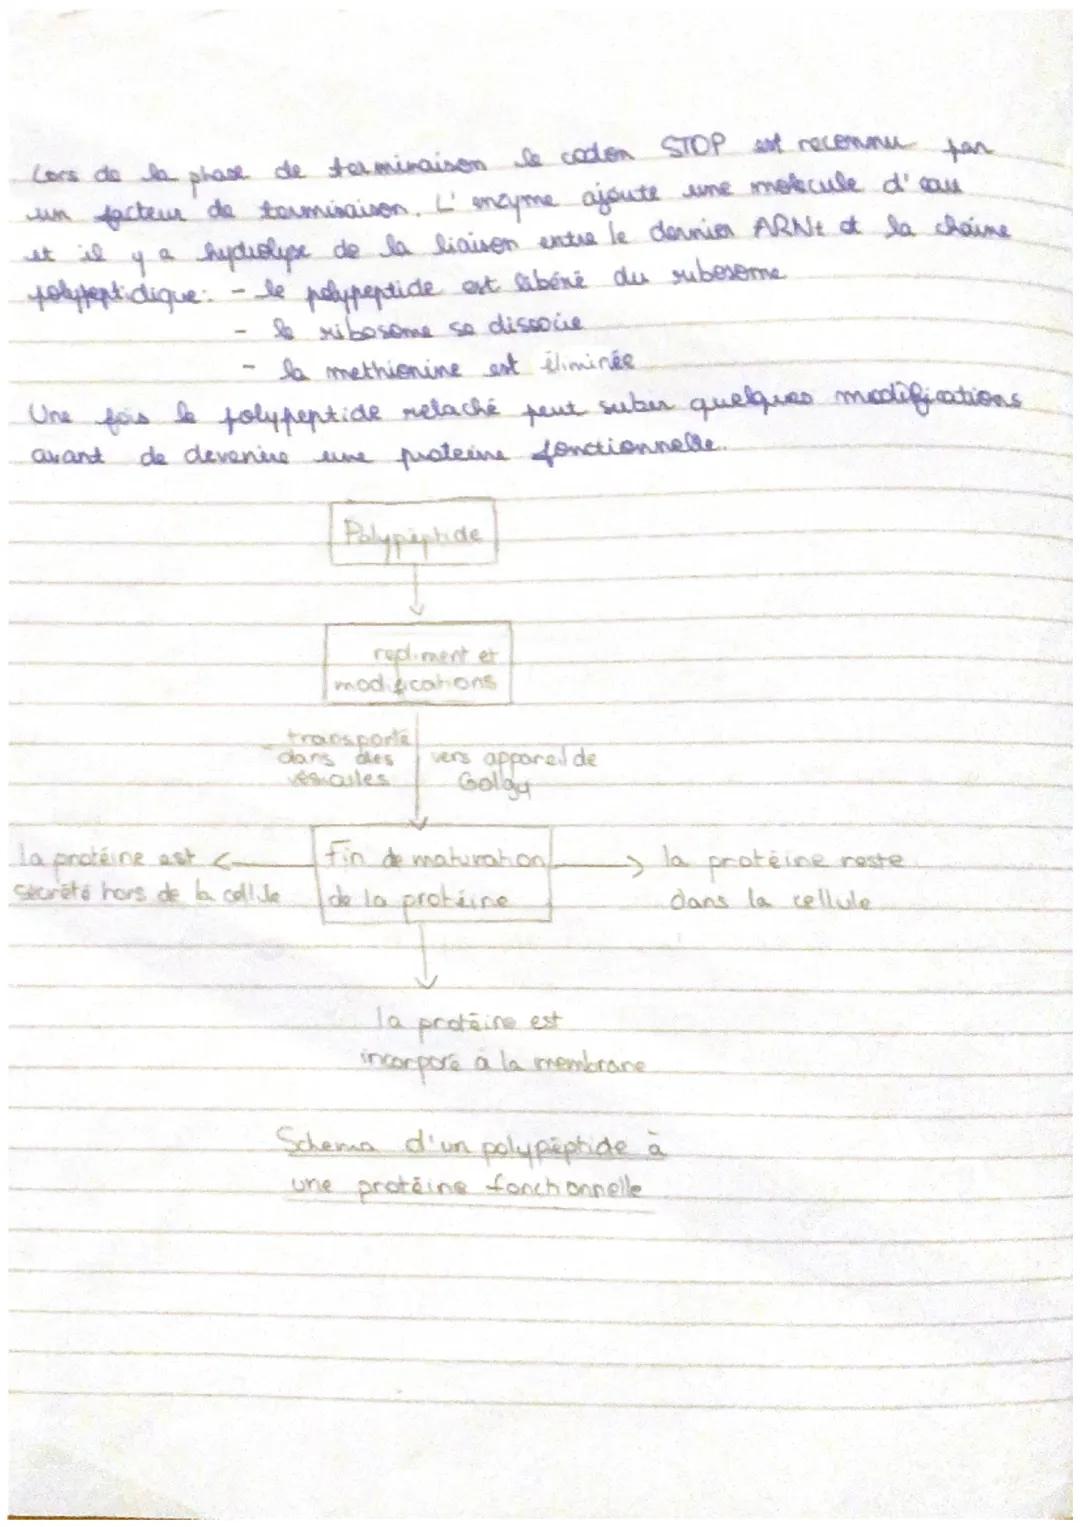 Lors de la phase de terminaison le codon STOP est reconnu par
un facteur de terminaison. L'enzyme ajoute une molecule d'eau
et il y a hydrolyse de la liaison entre le dernier ARNt et la chaîne
polypeptidique: - le polypeptide est libéré du ribosome
- le ribosome se dissocie
- la methionine est éliminée
Une fois le polypeptide relaché peut subir quelques modifications
avant de devenire une proteine fonctionnelle.
Polypéptide
repliment et
modifications
transporté
dans des
vésicules
vers appareil de
Golgy
la protéine est
sécrété hors de la cellule
Fin de maturation
de la protéine
la protéine reste
dans la cellule
la protéine est
incorporé à la membrane
Schema d'un polypéptide à
une protéine fonctionnelle